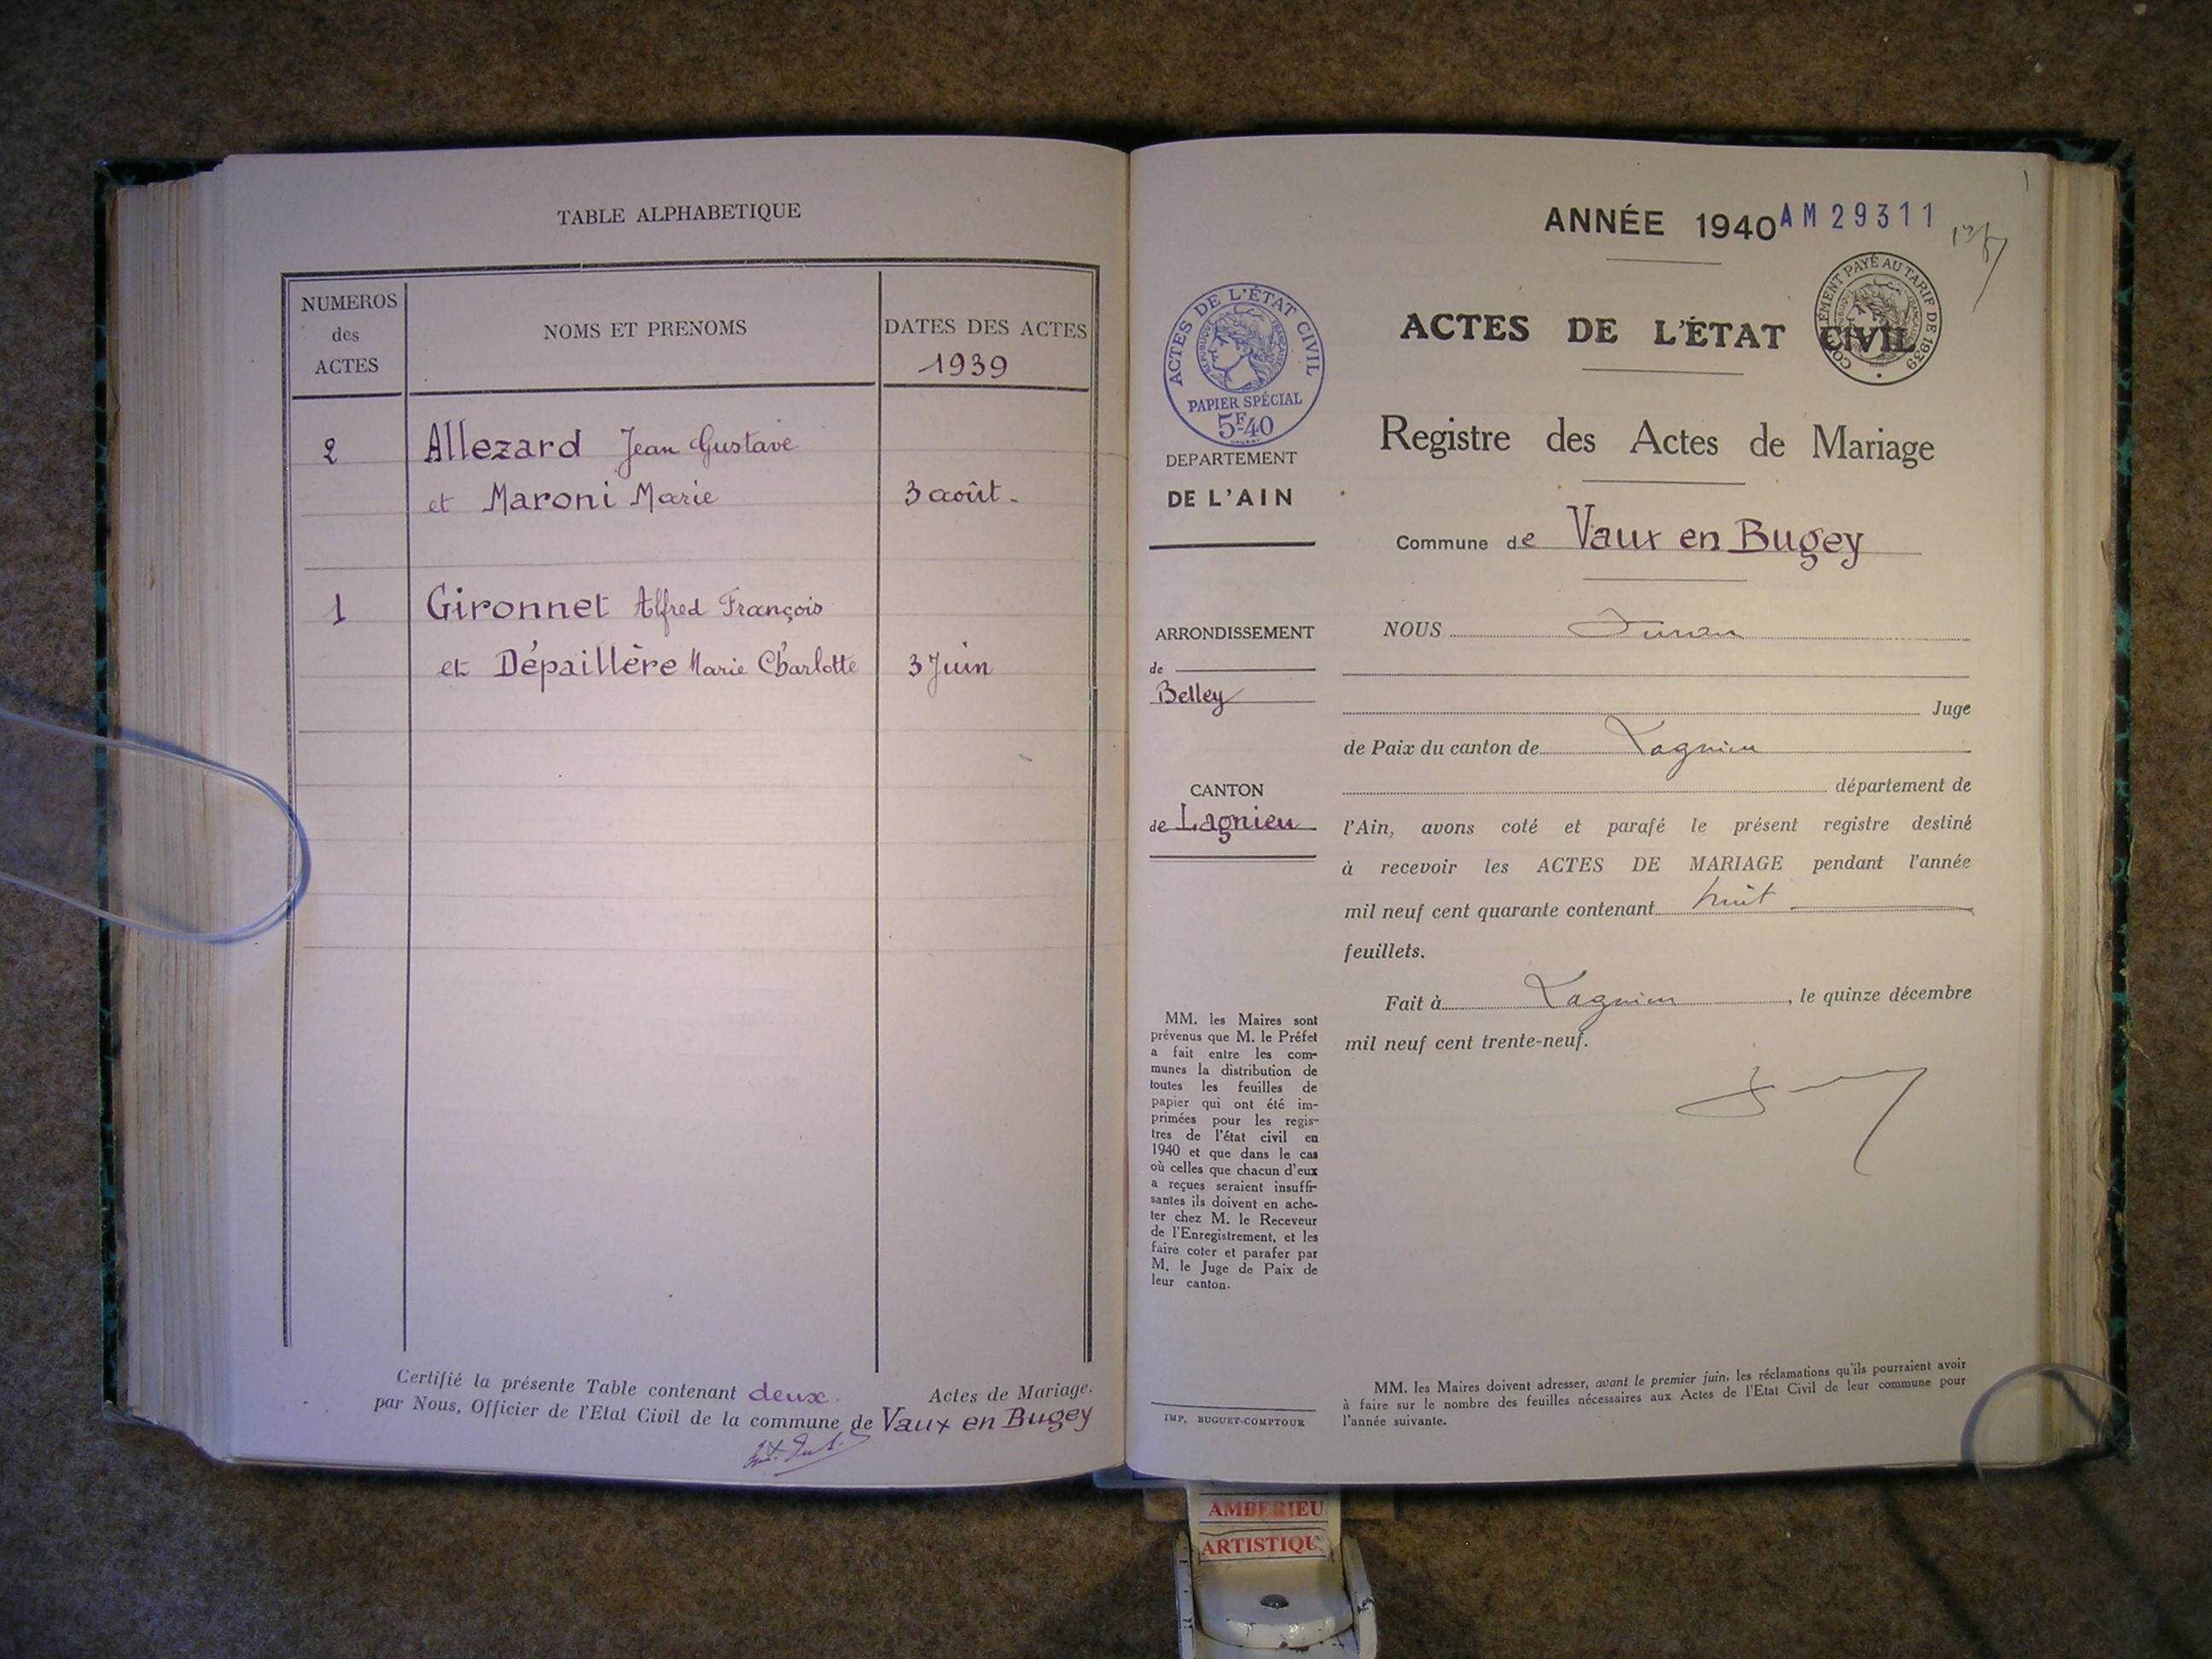 TABLE ALPHABETIQUE
NUMEROS
des
ACTES
NOMS ET PRENOMS
DATES DES ACTES
1939
2 Allezard Jean Gustave
et Maroni Marie 3 août.
1 Gironnet Alfred François
et Dépaillère Marie Charlotte 3 Juin
Certifié la présente Table contenant deux. Actes de Mariage.
par Nous, Officier de l'Etat Civil de la commune de Vaux en Bugey
1
ANNÉE 1940 AM29311
ACTES DE L'ÉTAT CIVIL
PAPIER SPÉCIAL
5F40
COMPLÉMENT PAYÉ AU TARIF DE 1939
ACTES DE L'ÉTAT CIVIL
Registre des Actes de Mariage
Commune de Vaux en Bugey
DEPARTEMENT
DE L'AIN
ARRONDISSEMENT
de
Belley
CANTON
de Lagnieu
MM. les Maires sont
prévenus que M. le Préfet
a fait entre les com-
munes la distribution de
toutes les feuilles de
papier qui ont été im-
primées pour les regis-
tres de l'état civil en
1940 et que dans le cas
où celles que chacun d'eux
a reçues seraient insuffi-
santes ils doivent en ache-
ter chez M. le Receveur
de l'Enregistrement, et les
faire coter et parafer par
M. le Juge de Paix de
leur canton.
IMP. BUGUET-COMPTOUR
NOUS
Juge
de Paix du canton de Lagnieu
département de
l'Ain, avons coté et parafé le présent registre destiné
à recevoir les ACTES DE MARIAGE pendant l'année
mil neuf cent quarante contenant huit
feuillets.
Fait à Lagnieu, le quinze décembre
mil neuf cent trente-neuf.
MM. les Maires doivent adresser, avant le premier juin, les réclamations qu'ils pourraient avoir
à faire sur le nombre des feuilles nécessaires aux Actes de l'Etat Civil de leur commune pour
l'année suivante.
AMBERIEU
ARTISTIQU